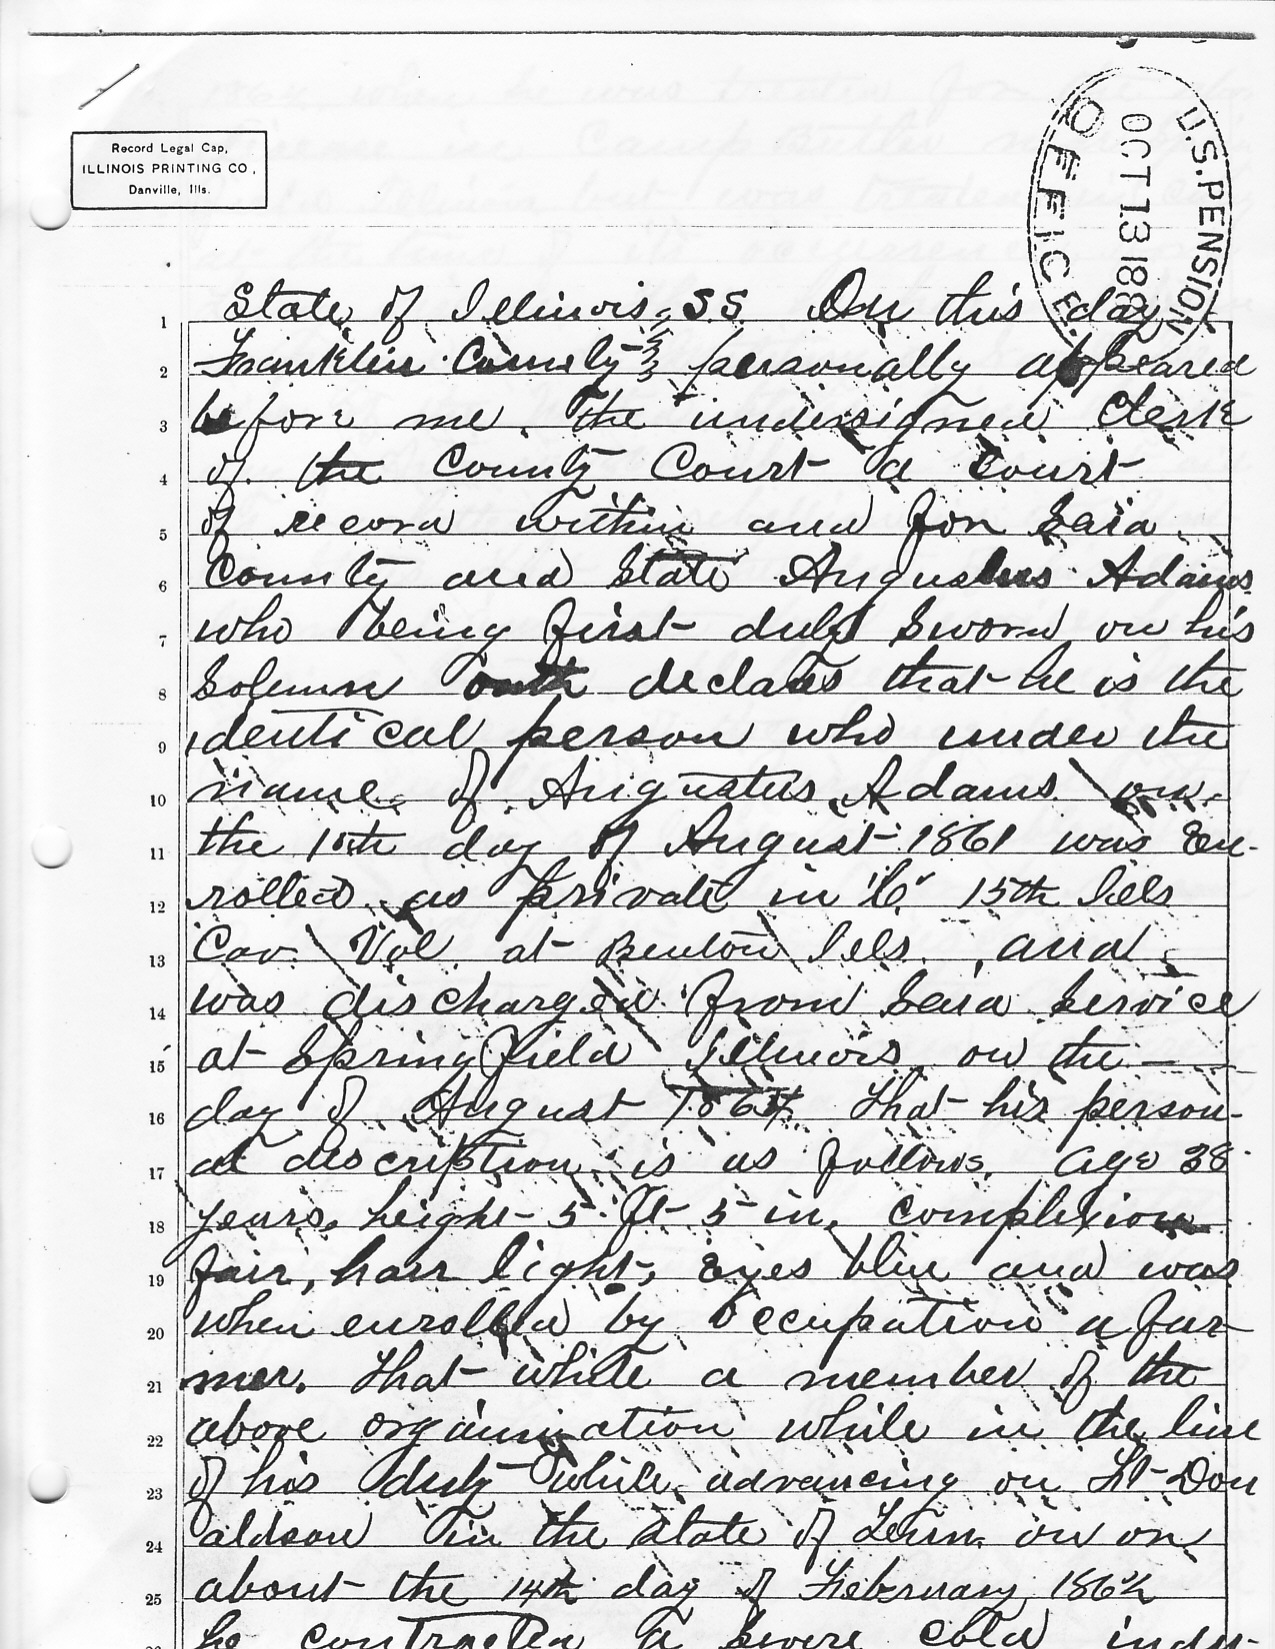 Record Legal Cap,
ILLINOIS PRINTING CO,
Danville, Ills.
U.S. PENSION
OCT 13 188
OFFICE
1 State of Illinois, SS On this day
2 Franklin County personally appeared
3 before me, the undersigned Clerk
4 of the County Court a court
5 of record within and for said
6 County and State Augustus Adams
7 who being first duly sworn on his
8 Solemn oath declares that he is the
9 identical person who under the
10 name of Augustus Adams on
11 the 10th day of August 1861 was En-
12 rolled as private in "C" 15th Ills
13 Cav. Vol. at Benton Ills., and
14 was discharged from said service
15 at Springfield Illinois on the —
16 day of August 1864. That his person-
17 al description is as follows. Age 38
18 years, height 5 ft 5 in, complexion
19 fair, hair light, Eyes blue and was
20 when enrolled by occupation a far-
21 mer. That while a member of the
22 above organization while in the line
23 of his duty while advancing on Ft Don
24 aldson in the state of Tenn. on or
25 about the 14th day of February 1862
he contracted a severe cold